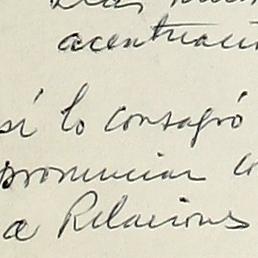 acentuación
sí lo consagró
pronunciar co
a Relaciones